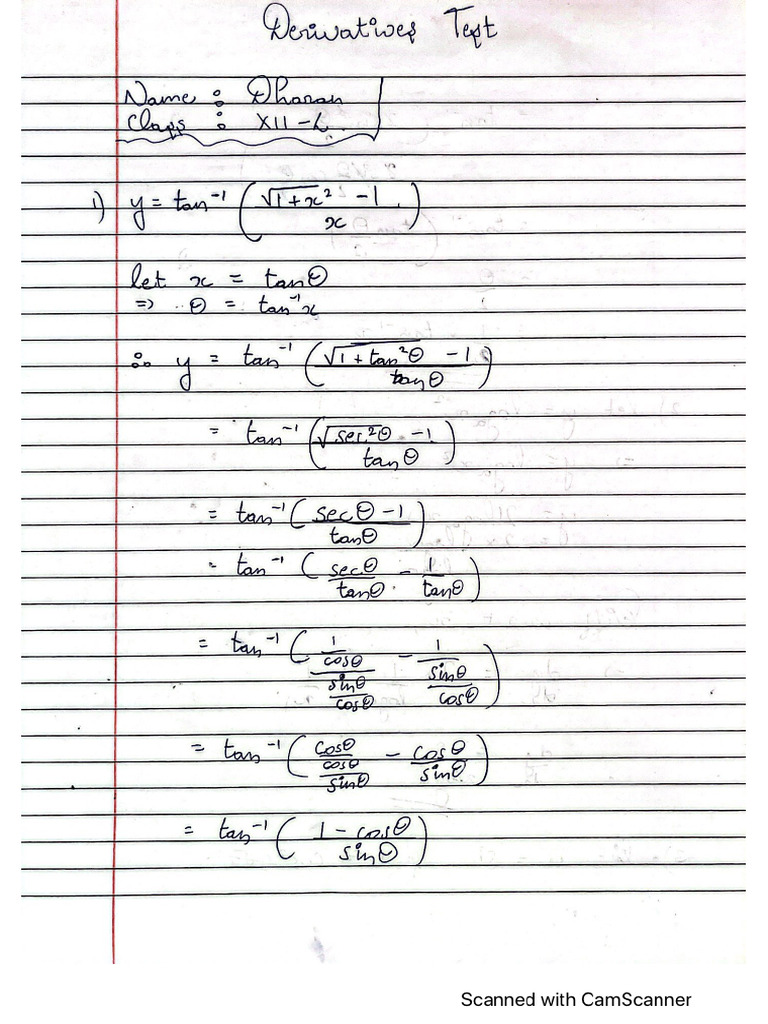 Derivatives Test
Name : Dharan
Class : XII-L
1) y = tan⁻¹ (√(1+x²) - 1 / x)
let x = tanθ
=> θ = tan⁻¹x
∴ y = tan⁻¹ (√(1 + tan²θ) - 1 / tanθ)
= tan⁻¹ (√(sec²θ) - 1 / tanθ)
= tan⁻¹ (secθ - 1 / tanθ)
= tan⁻¹ (secθ/tanθ - 1/tanθ)
= tan⁻¹ ((1/cosθ)/(sinθ/cosθ) - 1/(sinθ/cosθ))
= tan⁻¹ ((cosθ/cosθ)/sinθ - cosθ/sinθ)
= tan⁻¹ (1 - cosθ / sinθ)
Scanned with CamScanner